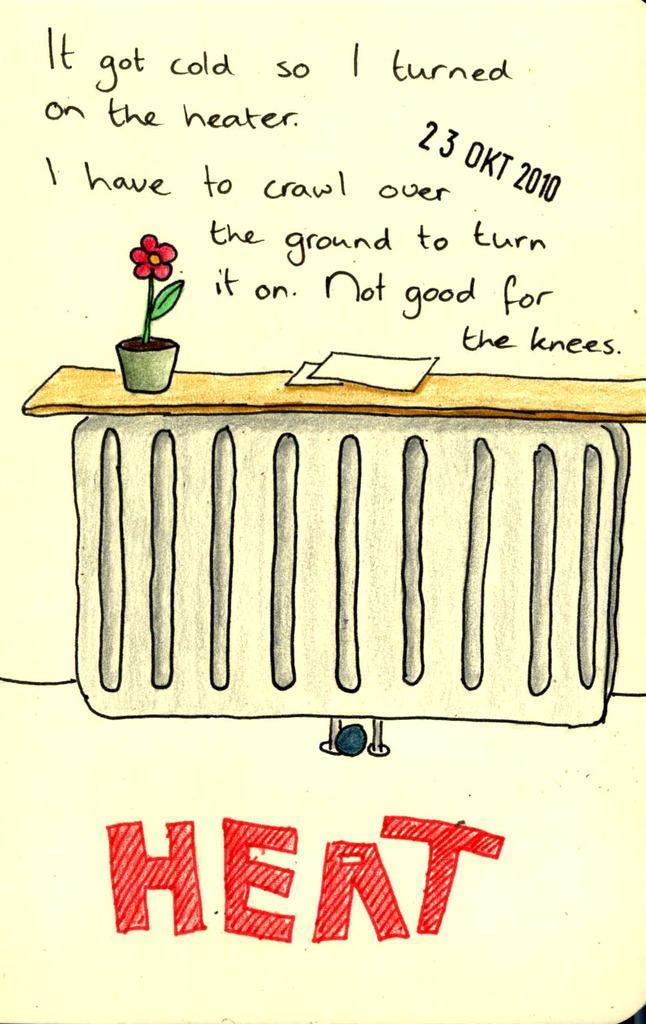 It got cold so I turned
on the heater.
23 OKT 2010
I have to crawl over
the ground to turn
it on. Not good for
the knees.
HEAT